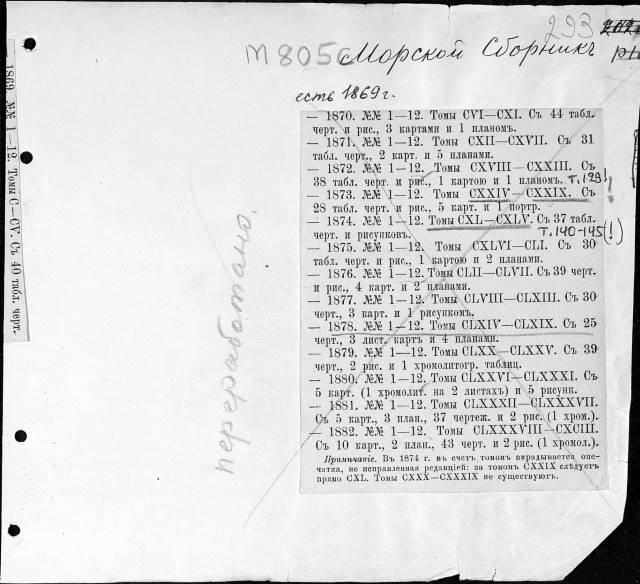 293
М 805с Морской Сборникъ
есть 1869 г.
— 1869. №№ 1—12. Томы C—CV. Съ 40 табл. черт.
— 1870. №№ 1—12. Томы CVI—CXI. Съ 44 табл.
черт. и рис., 3 картами и 1 планомъ.
— 1871. №№ 1—12. Томы CXII—CXVII. Съ 31
табл. черт., 2 карт. и 5 планами.
— 1872. №№ 1—12. Томы CXVIII—CXXIII. Съ
38 табл. черт. и рис., 1 картою и 1 планомъ. т. 129!
— 1873. №№ 1—12. Томы CXXIV—CXXIX. Съ !
28 табл. черт. и рис., 5 карт. и 1 портр.
— 1874. №№ 1—12. Томы CXL—CXLV. Съ 37 табл.
черт. и рисунковъ. т. 140-145 (!)
— 1875. №№ 1—12. Томы CXLVI—CLI. Съ 30
табл. черт. и рис., 1 картою и 2 планами.
— 1876. №№ 1—12. Томы CLII—CLVII. Съ 39 черт.
и рис., 4 карт. и 2 планами.
— 1877. №№ 1—12. Томы CLVIII—CLXIII. Съ 30
черт., 3 карт. и 1 рисункомъ.
— 1878. №№ 1—12. Томы CLXIV—CLXIX. Съ 25
черт., 3 лист. картъ и 4 планами.
— 1879. №№ 1—12. Томы CLXX—CLXXV. Съ 39
черт., 2 рис. и 1 хромолитогр. таблиц.
— 1880. №№ 1—12. Томы CLXXVI—CLXXXI. Съ
5 карт. (1 хромолит. на 2 листахъ) и 5 рисунк.
— 1881. №№ 1—12. Томы CLXXXII—CLXXXVII.
Съ 5 карт., 3 план., 37 чертеж. и 2 рис. (1 хром.).
— 1882. №№ 1—12. Томы CLXXXVIII—CXCIII.
Съ 10 карт., 2 план., 43 черт. и 2 рис. (1 хромол.).
Примѣчаніе. Въ 1874 г. въ счетъ томовъ вкрадывается опе-
чатка, не исправленная редакціей: за томомъ CXXIX слѣдуетъ
прямо CXL. Томы CXXX—CXXXIX не существуютъ.
переработано.